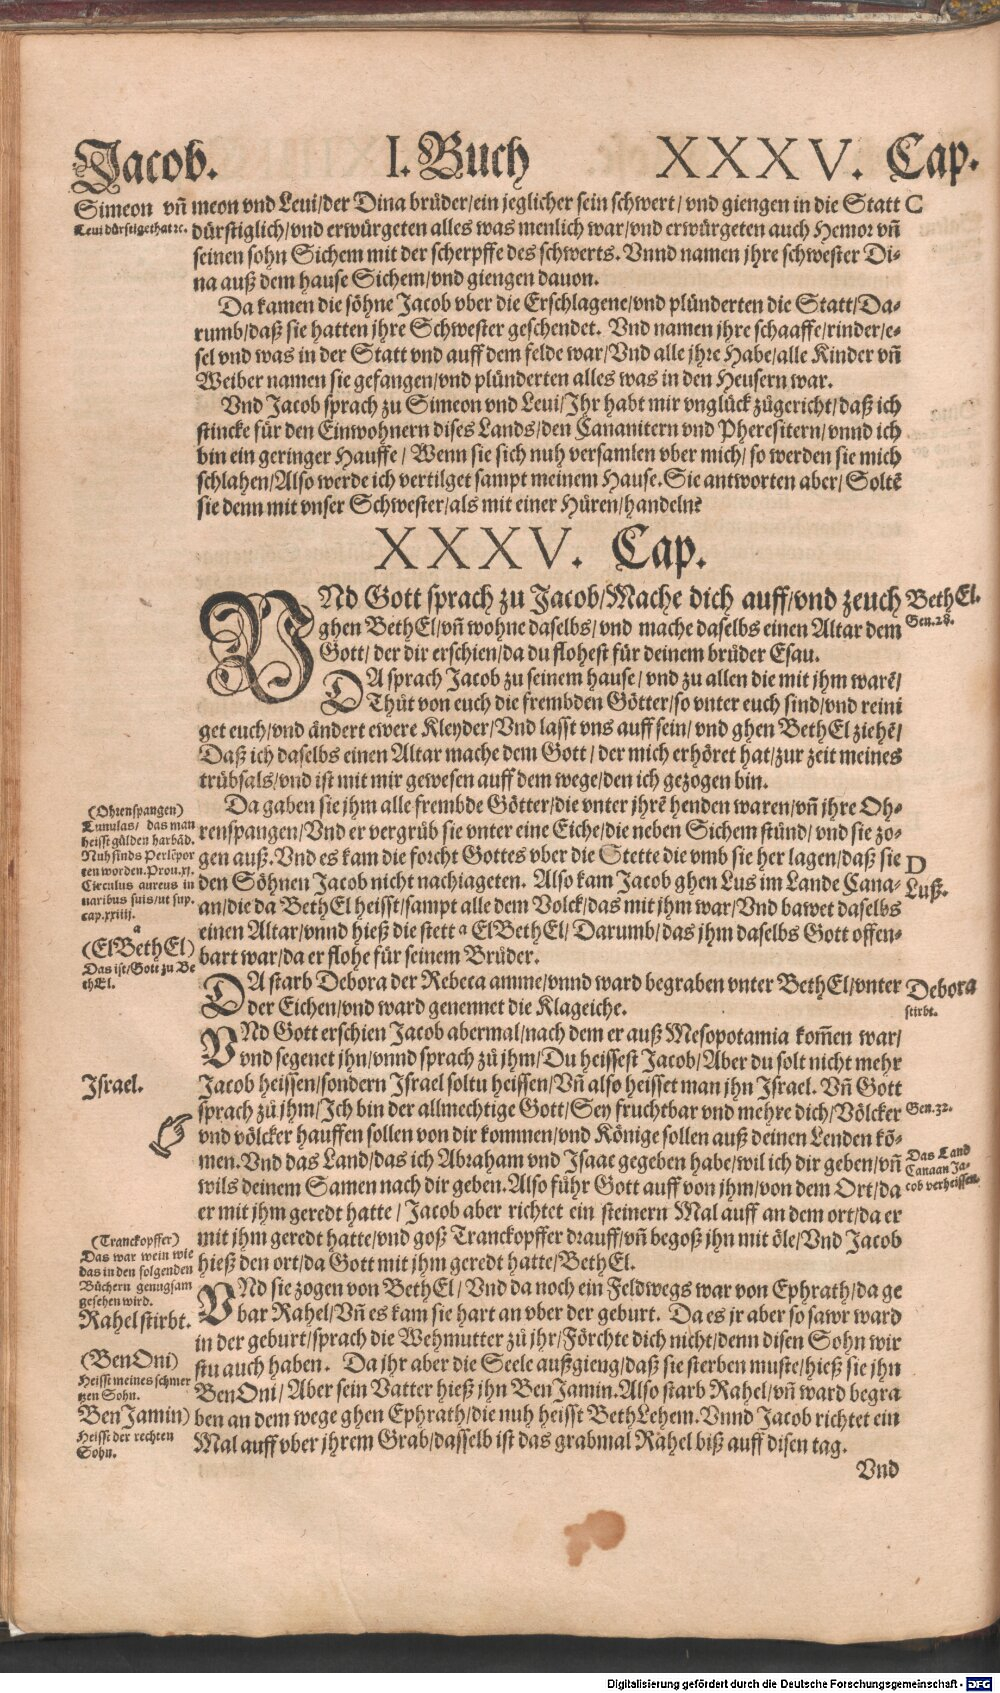 Jacob. I. Buch XXXV. Cap.
Simeon vñ
Leui dürstigethat ꝛc.
meon vnd Leui/der Dina brüder/ein jeglicher sein schwert/ vnd giengen in die Statt
dürstiglich/vnd erwürgeten alles was menlich war/vnd erwürgeten auch Hemor vñ
seinen sohn Sichem mit der scherpffe des schwerts. Vnnd namen jhre schwester Di-
na auß dem hause Sichem/vnd giengen dauon.
C
Da kamen die söhne Jacob vber die Erschlagene/vnd plünderten die Statt/Da-
rumb/daß sie hatten jhre Schwester geschendet. Vnd namen jhre schaaffe/rinder/e-
sel vnd was in der Statt vnd auff dem felde war/Vnd alle jhre Habe/alle Kinder vñ
Weiber namen sie gefangen/vnd plünderten alles was in den Heusern war.
Vnd Jacob sprach zu Simeon vnd Leui/Jhr habt mir vnglück zügericht/daß ich
stincke für den Einwohnern dises Lands/den Cananitern vnd Pheresitern/vnnd ich
bin ein geringer Hauffe/ Wenn sie sich nuh versamlen vber mich/ so werden sie mich
schlahen/Also werde ich vertilget sampt meinem Hause. Sie antworten aber/ Soltē
sie denn mit vnser Schwester/als mit einer Hüren/handeln?
XXXV. Cap.
VNd Gott sprach zu Jacob/Mache dich auff/vnd zeuch
ghen BethEl/vñ wohne daselbs/ vnd mache daselbs einen Altar dem
Gott/ der dir erschien/da du flohest für deinem brüder Esau.
BethEl.
Gen.28.
DA sprach Jacob zu seinem hause/ vnd zu allen die mit jhm warē/
Thüt von euch die frembden Götter/so vnter euch sind/vnd reini
get euch/vnd ändert ewere Kleyder/Vnd lasst vns auff sein/ vnd ghen BethEl ziehē/
Daß ich daselbs einen Altar mache dem Gott/ der mich erhöret hat/zur zeit meines
trübsals/vnd ist mit mir gewesen auff dem wege/den ich gezogen bin.
(Ohrenspangen)
Lunulas/ das man
heisst gülden harbād.
Nuh sinds Perlē
ten worden.Prou.xj.
Circulus aureus in
naribus suis/ut sup.
cap.xxiiij.
Da gaben sie jhm alle frembde Götter/die vnter jhrē henden waren/vñ jhre Oh-
renspangen/Vnd er vergrüb sie vnter eine Eiche/die neben Sichem stünd/ vnd sie zo-
gen auß.Vnd es kam die forcht Gottes vber die Stette die vmb sie her lagen/daß sie
den Söhnen Jacob nicht nachiageten. Also kam Jacob ghen Lus im Lande Cana-
an/die da BethEl heisst/sampt alle dem Volck/das mit jhm war/Vnd bawet daselbs
einen Altar/vnnd hieß die stett a ElBethEl/ Darumb/das jhm daselbs Gott offen-
bart war/da er flohe für seinem Brüder.
D
Luß.
a
(ElBethEl)
Das ist/Gott zu Be
thEl.
DA starb Debora der Rebeca amme/vnnd ward begraben vnter BethEl/vnter
der Eichen/vnd ward genennet die Klageiche.
Debora
stirbt.
VNd Gott erschien Jacob abermal/nach dem er auß Mesopotamia kom̄en war/
vnd segenet jhn/vnnd sprach zü jhm/Du heissest Jacob/Aber du solt nicht mehr
Jacob heissen/sondern Israel soltu heissen/Vñ also heisset man jhn Israel. Vñ Gott
sprach zü jhm/Ich bin der allmechtige Gott/Sey fruchtbar vnd mehre dich/Völcker
vnd völcker hauffen sollen von dir kommen/vnd Könige sollen auß deinen Lenden kō-
men.Vnd das Land/das ich Abraham vnd Isaac gegeben habe/wil ich dir geben/vñ
wils deinem Samen nach dir geben.Also führ Gott auff von jhm/von dem Ort/da
er mit jhm geredt hatte/ Jacob aber richtet ein steinern Mal auff an dem ort/da er
mit jhm geredt hatte/vnd goß Tranckopffer drauff/vñ begoß jhn mit öle/Vnd Jacob
hieß den ort/da Gott mit jhm geredt hatte/BethEl.
Israel.
Gen.32.
Das Land
Canaan Ja-
cob verheissen.
(Tranckopffer)
Das war wein wie
das in den folgenden
Büchern genugsam
gesehen wird.
Rahel stirbt.
VNd sie zogen von BethEl/ Vnd da noch ein Feldwegs war von Ephrath/da ge
bar Rahel/Vñ es kam sie hart an vber der geburt. Da es jr aber so sawr ward
in der geburt/sprach die Wehmutter zü jhr/Förchte dich nicht/denn disen Sohn wir
stu auch haben. Da jhr aber die Seele außgieng/daß sie sterben muste/hieß sie jhn
BenOni/ Aber sein Vatter hieß jhn BenJamin.Also starb Rahel/vñ ward begra
ben an dem wege ghen Ephrath/die nuh heisst BethLehem.Vnnd Jacob richtet ein
Mal auff vber jhrem Grab/dasselb ist das grabmal Rahel biß auff disen tag.
(BenOni)
Heisst meines schmer
tzen Sohn.
BenJamin)
Heisst der rechten
Sohn.
Vnd
Digitalisierung gefördert durch die Deutsche Forschungsgemeinschaft - DFG